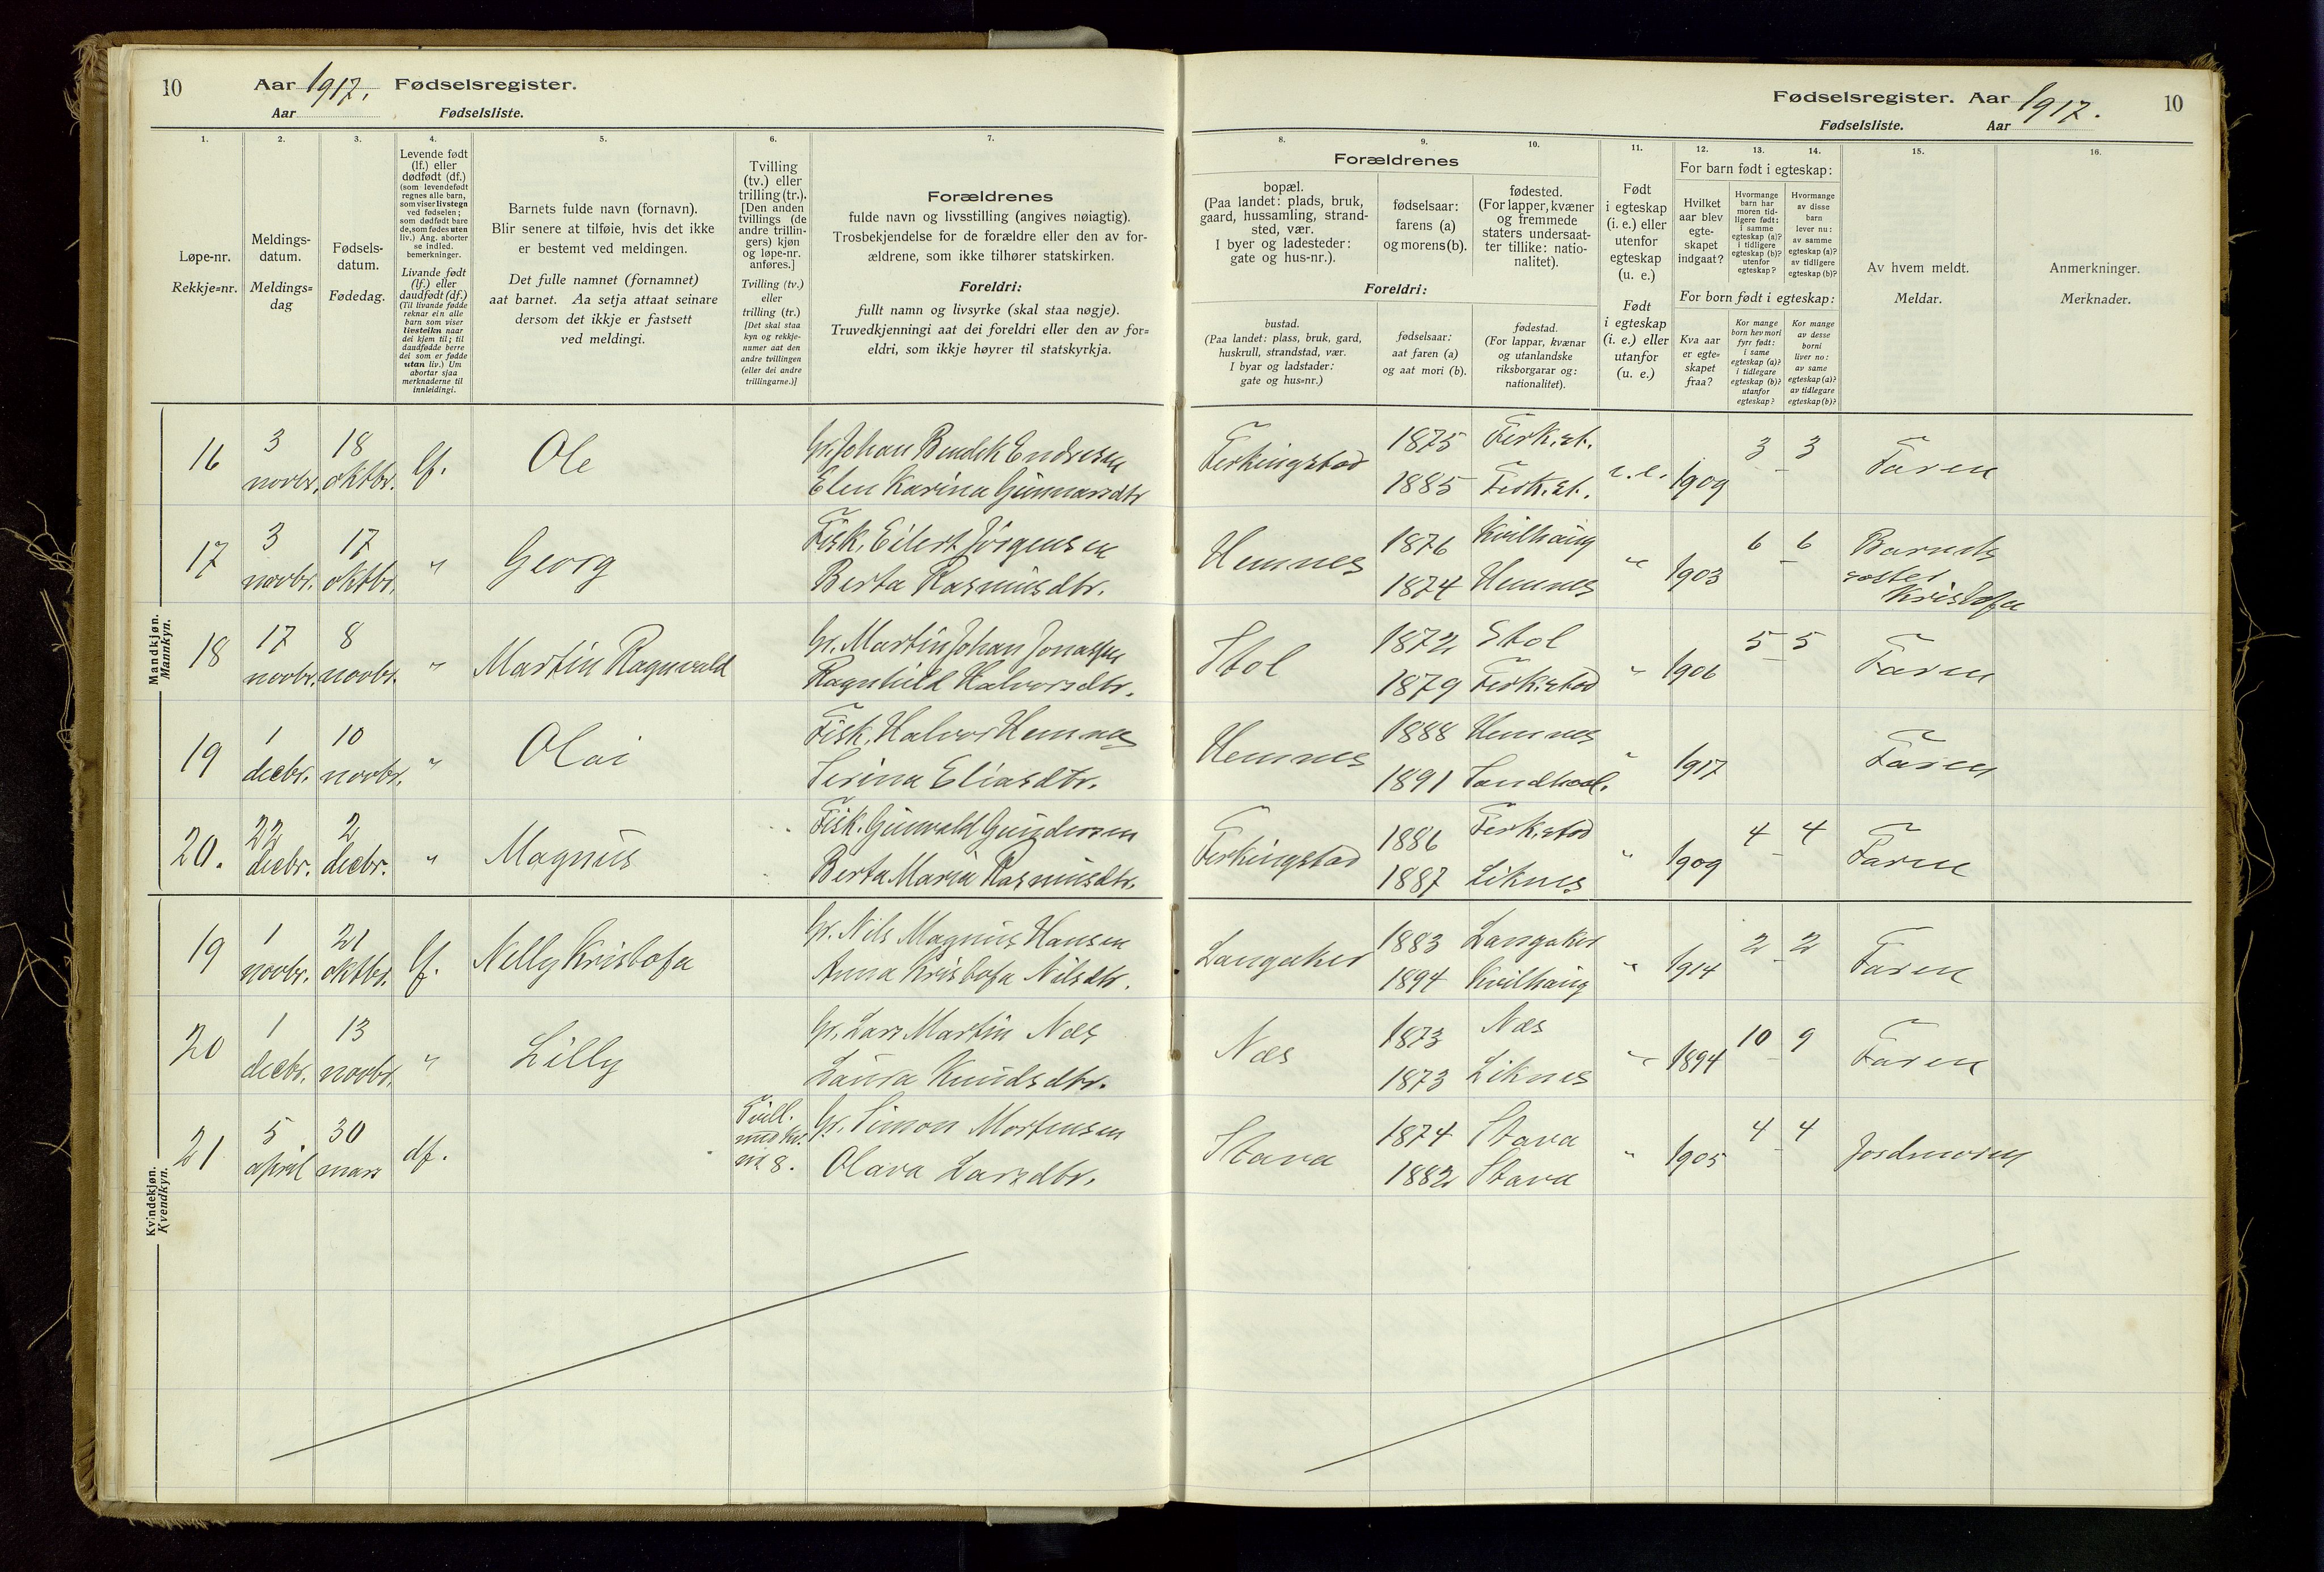 10
Aar 1917. Fødselsregister.
Aar Fødselsliste.
1. 2. 3. 4. 5. 6. 7.
Løpe-nr.
Rekkje=nr.
Meldings-
datum.
Meldings=
dag
Fødsels-
datum.
Fødedag.
Levende født
(lf.) eller
dødfødt (df.)
(som levendefødt
regnes alle barn,
som viser livstegn
ved fødselen;
som dødfødt bare
de, som fødes uten
liv.) Ang. aborter
se indled.
bemerkninger.
Livande født
(lf.) eller
daudfødt (df.)
(Til livande fødde
reknar ein alle
barn som viser
livsteikn naar
dei kjem til; til
daudfødde berre
dei som er fødde
utan liv.) Um
abortar sjaa
merknaderne til
innleidingi.
Barnets fulde navn (fornavn).
Blir senere at tilføie, hvis det ikke
er bestemt ved meldingen.
Det fulle namnet (fornamnet)
aat barnet. Aa setja attaat seinare
dersom det ikkje er fastsett
ved meldingi.
Tvilling
(tv.) eller
trilling (tr.).
[Den anden
tvillings (de
andre trillin-
gers) kjøn
og løpe-nr.
anføres.]
Tvilling (tv.)
eller
trilling (tr.)
[Det skal staa
kyn og rekkje-
numer aat den
andre tvillingen
(eller dei andre
trillingarne.)]
Forældrenes
fulde navn og livsstilling (angives nøiagtig).
Trosbekjendelse for de forældre eller den av for-
ældrene, som ikke tilhører statskirken.
Foreldri:
fullt namn og livsyrke (skal staa nøgje).
Truvedkjenningi aat dei foreldri eller den av for=
eldri, som ikkje høyrer til statskyrkja.
Mandkjøn.
Mannkyn.
16 3 novbr. 18 oktbr. lf. Ole
Gr. Johan Bendik Endresen
Elen Karina Gunnarsdtr
17 3 novbr. 17 oktbr. " Georg
Fisk. Eilert Jørgensen
Berta Rasmusdtr.
18 17 novbr. 8 novbr. " Martin Ragnvald
Gr. Martin Johan Jonassen
Ragnhild Halvorsdtr.
19 1 decbr. 10 novbr. " Olai
Fisk. Halvor Hemnes
Serina Eliasdtr.
20. 22 decbr. 2 decbr. " Magnus
Fisk. Gunvald Gundersen
Berta Maria Rasmusdtr.
Kvindekjøn.
Kvendkyn.
19 1 novbr. 21 oktbr. lf. Nelly Kristofa
Gr. Nils Magnus Hansen
Anna Kristofa Nilsdtr.
20 1 decbr. 13 novbr. " Lilly
Gr. Lars Martin Næs
Laura Knudsdtr.
21 5 april 30 mars df.
Tvill.
med kv.
nr 8.
Gr. Simon Mortensen
Olava Larsdtr.
Fødselsregister. Aar 1917. 10
Fødselsliste. Aar
8. 9. 10. 11. 12. 13. 14. 15. 16.
Forældrenes
bopæl.
(Paa landet: plads, bruk,
gaard, hussamling, strand-
sted, vær.
I byer og ladesteder:
gate og hus-nr.).
fødselsaar:
farens (a)
og morens (b).
fødested.
(For lapper, kvæner
og fremmede
staters undersaat-
ter tillike: natio-
nalitet).
Foreldri:
bustad.
(Paa landet: plass, bruk, gard,
huskrull, strandstad, vær.
I byar og ladstader:
gate og hus=nr.)
fødselsaar:
aat faren (a)
og aat mori (b).
fødestad.
(For lappar, kvænar
og utanlandske
riksborgarar og:
nationalitet).
Født
i egteskap
(i. e.) eller
utenfor
egteskap
(u. e.)
Født
i egteskap
(i. e.) eller
utanfor
(u. e.)
For barn født i egteskap:
Hvilket
aar blev
egte-
skapet
indgaat?
Hvormange
barn har
moren tid-
ligere født:
i samme
egteskap (a)?
i tidligere
egteskap (b)?
utenfor
egteskap?
Hvormange
av disse
barn
lever nu:
av samme
egteskap (a)?
av tidligere
egteskap (b)?
For born født i egteskap:
Kva aar
er egte=
skapet
fraa?
Kor mange
born hev mori
fyrr født:
i same
egteskap (a)?
i tidlegare
egteskap (b)?
utanfor
egteskap?
Kor mange
av desse
borni
liver no:
av same
egteskap (a)?
av tidlegare
egteskap (b)?
Av hvem meldt.
Meldar.
Anmerkninger.
Merknader.
Ferkingstad 1875 Ferk.st. i.e. 1909 3 - 3 Faren
1885 Ferk.st.
Hemnes 1876 Kvilhaug " 1903 6 - 6 Barnets
1874 Hemnes søster
Kristofa
Stol 1872 Stol " 1906 5 - 5 Faren
1879 Ferk.stad
Hemnes 1888 Hemnes " 1917 Faren
1891
Ferkingstad 1886 Ferk.stad " 1909 4 - 4 Faren
1887 Liknes
Langaker 1883 Langaker " 1914 2 - 2 Faren
1894 Kvilhaug
Næs 1873 Næs " 1894 10 - 9 Faren
1873 Liknes
Stava 1874 Stava " 1905 4 - 4 Jordmoren
1882 Stava